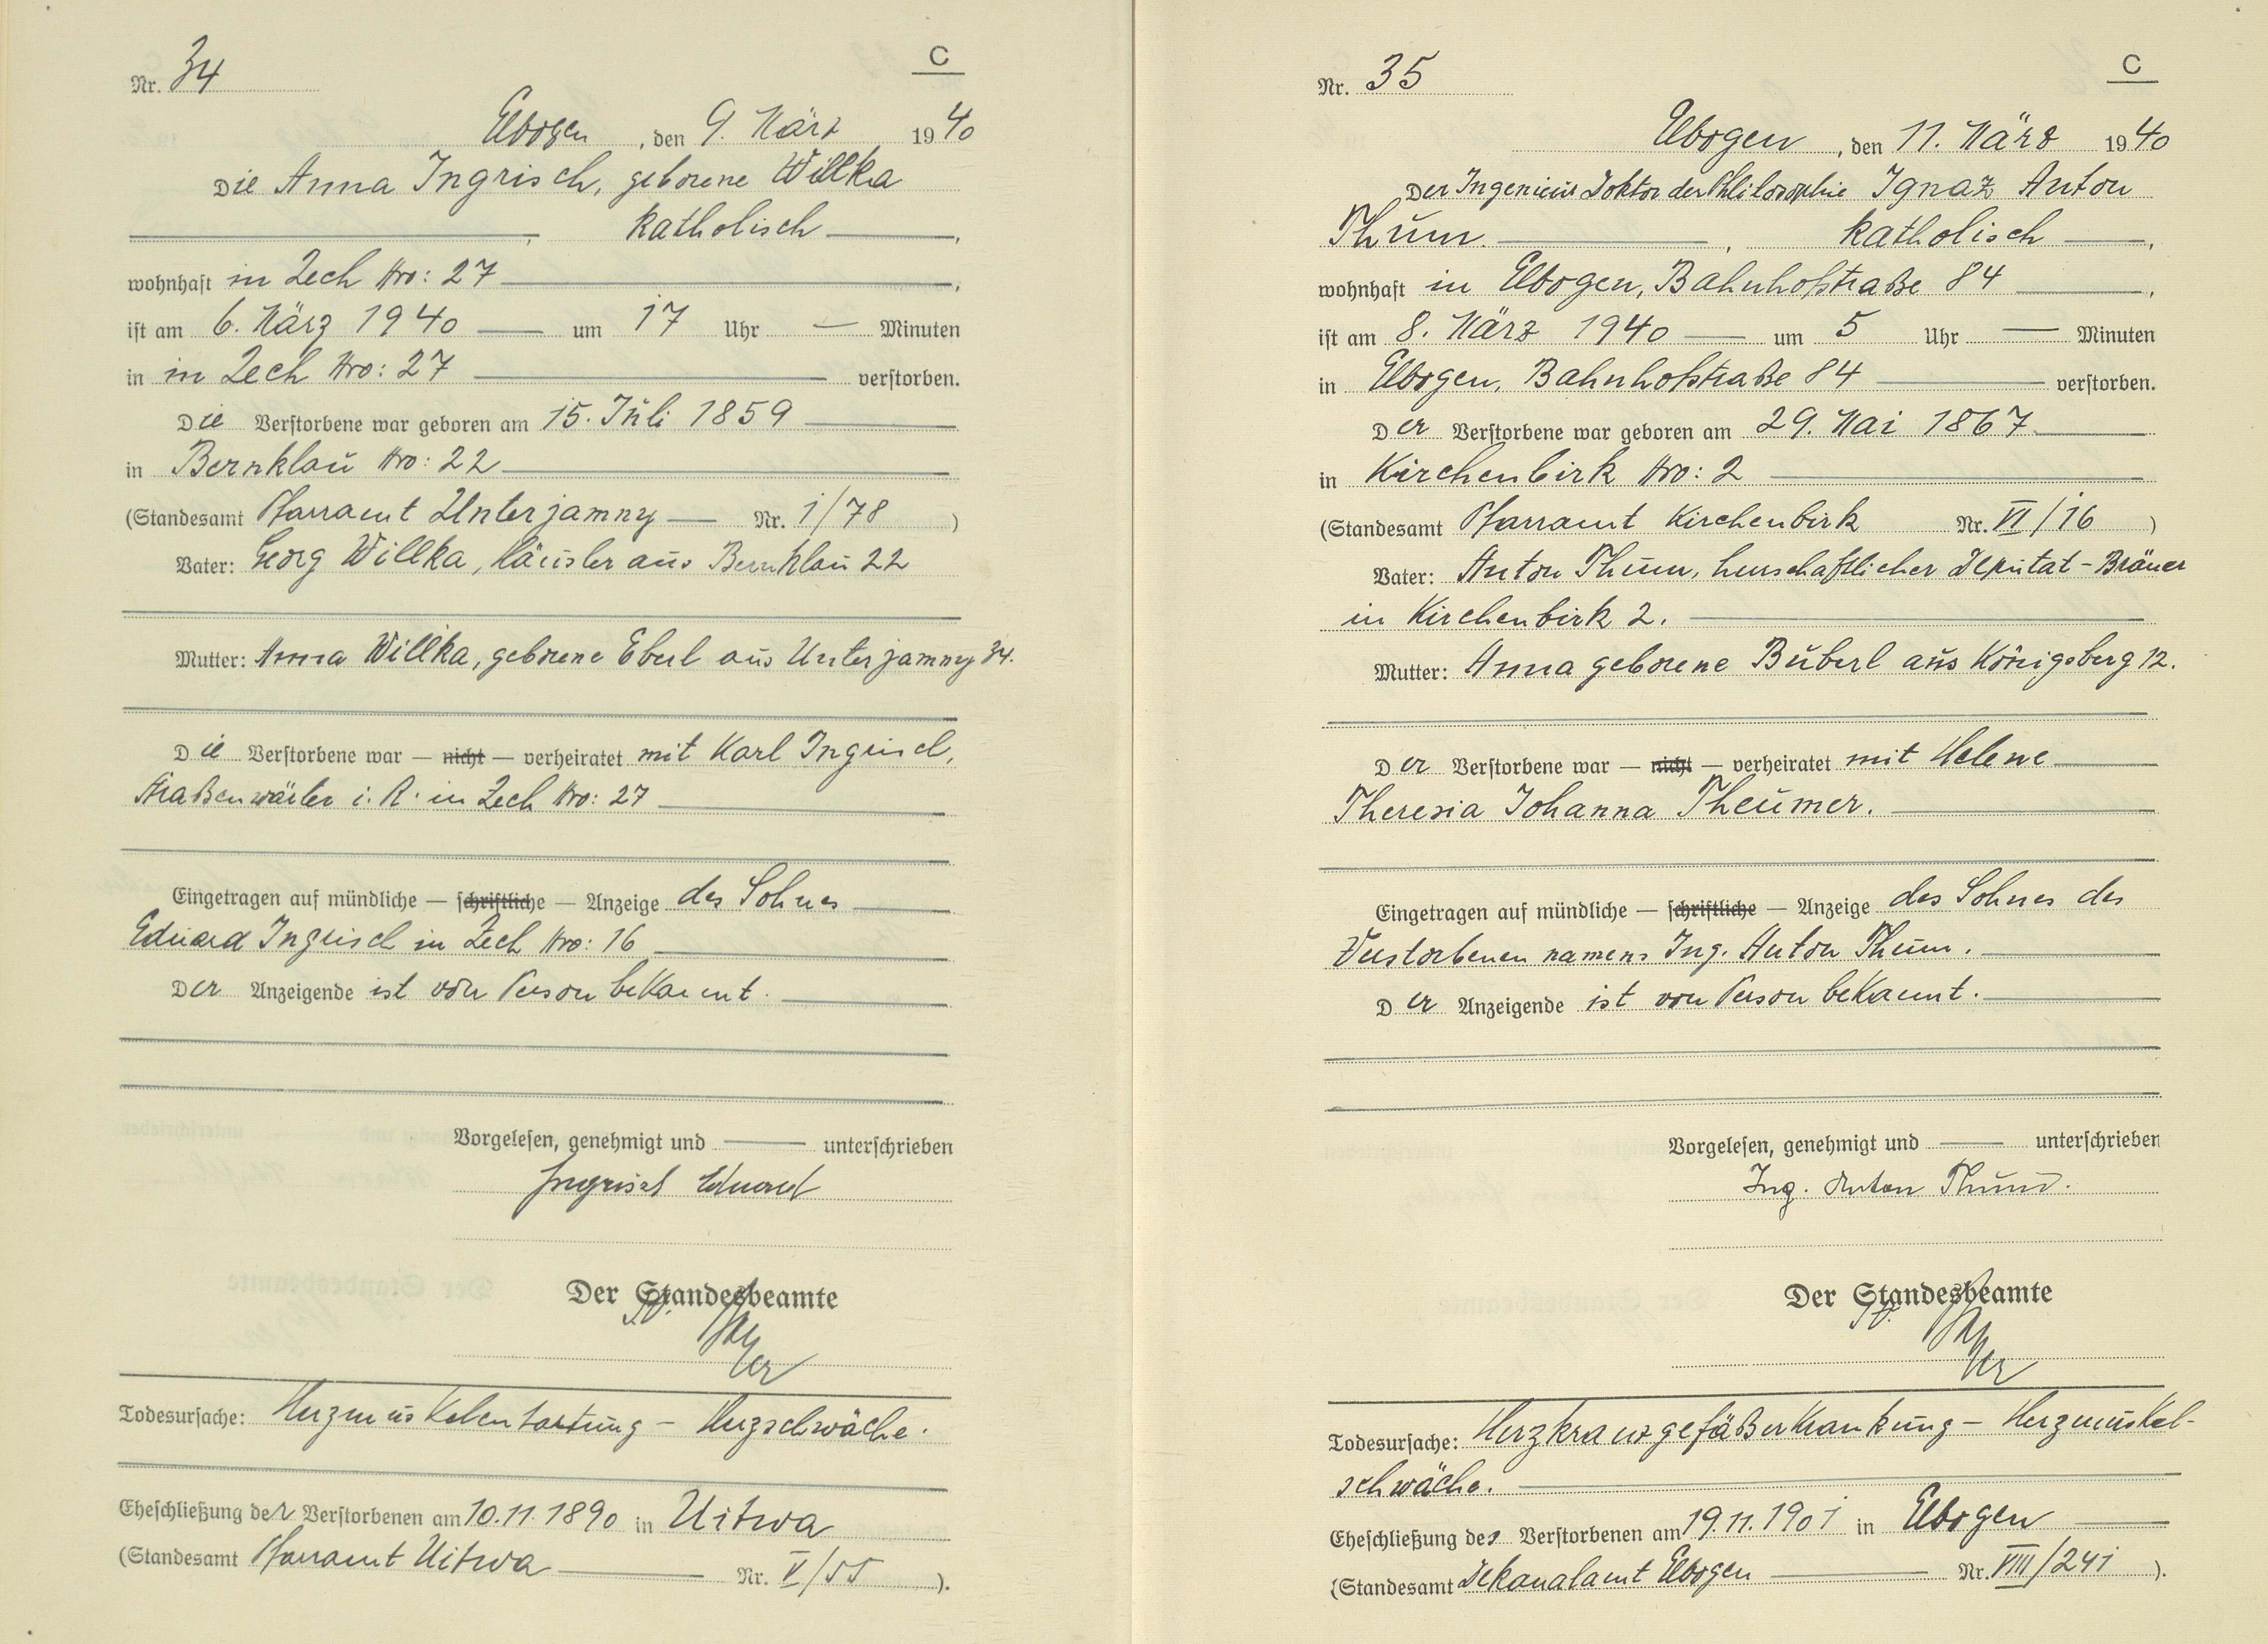 C
Nr. 34
Elbogen, den 9. März 1940
Die Anna Ingrisch, geborene Willka
, katholisch ,
wohnhaft in Zech Nro: 27 ,
ist am 6. März 1940 — um 17 Uhr — Minuten
in in Zech Nro: 27 verstorben.
Die Verstorbene war geboren am 15. Juli 1859
in Bernklau Nro: 22
(Standesamt Pfarramt Unterjamny — Nr. I/78 )
Vater: Georg Willka, Häusler aus Bernklau 22
Mutter: Anna Willka, geborene Eberl aus Unterjamny 34.
Die Verstorbene war — nicht — verheiratet mit Karl Ingrisch,
Straßenwärter i. R. in Zech Nro: 27
Eingetragen auf mündliche — schriftliche — Anzeige des Sohnes
Eduard Ingrisch in Zech Nro: 16
Der Anzeigende ist von Person bekannt.
Vorgelesen, genehmigt und — unterschrieben
Ingrisch Eduard
Der Standesbeamte
Todesursache: Herzmuskelentartung – Herzschwäche.
Eheschließung der Verstorbenen am 10.11.1890 in Uitwa
(Standesamt Pfarramt Uitwa — Nr. V/55 ).
C
Nr. 35
Elbogen, den 11. März 1940
Der Ingenieur Doktor der Philosophie Ignaz Anton
Thum , katholisch ,
wohnhaft in Elbogen, Bahnhofstraße 84 ,
ist am 8. März 1940 — um 5 Uhr — Minuten
in Elbogen, Bahnhofstraße 84 verstorben.
Der Verstorbene war geboren am 29. Mai 1867
in Kirchenbirk Nro: 2
(Standesamt Pfarramt Kirchenbirk Nr. VI/16 )
Vater: Anton Thum, herrschaftlicher Deputat-Bräuer
in Kirchenbirk 2.
Mutter: Anna geborene Buberl aus Königsberg 12.
Der Verstorbene war — nicht — verheiratet mit Helene
Theresia Johanna Theumer.
Eingetragen auf mündliche — schriftliche — Anzeige des Sohnes des
Verstorbenen namens Ing. Anton Thum.
Der Anzeigende ist von Person bekannt.
Vorgelesen, genehmigt und — unterschrieben
Ing. Anton Thum.
Der Standesbeamte
Todesursache: Herzkranzgefäßerkrankung – Herzmuskel-
schwäche.
Eheschließung des Verstorbenen am 19.11.1901 in Elbogen
(Standesamt Dekanalamt Elbogen — Nr. VIII/241 ).